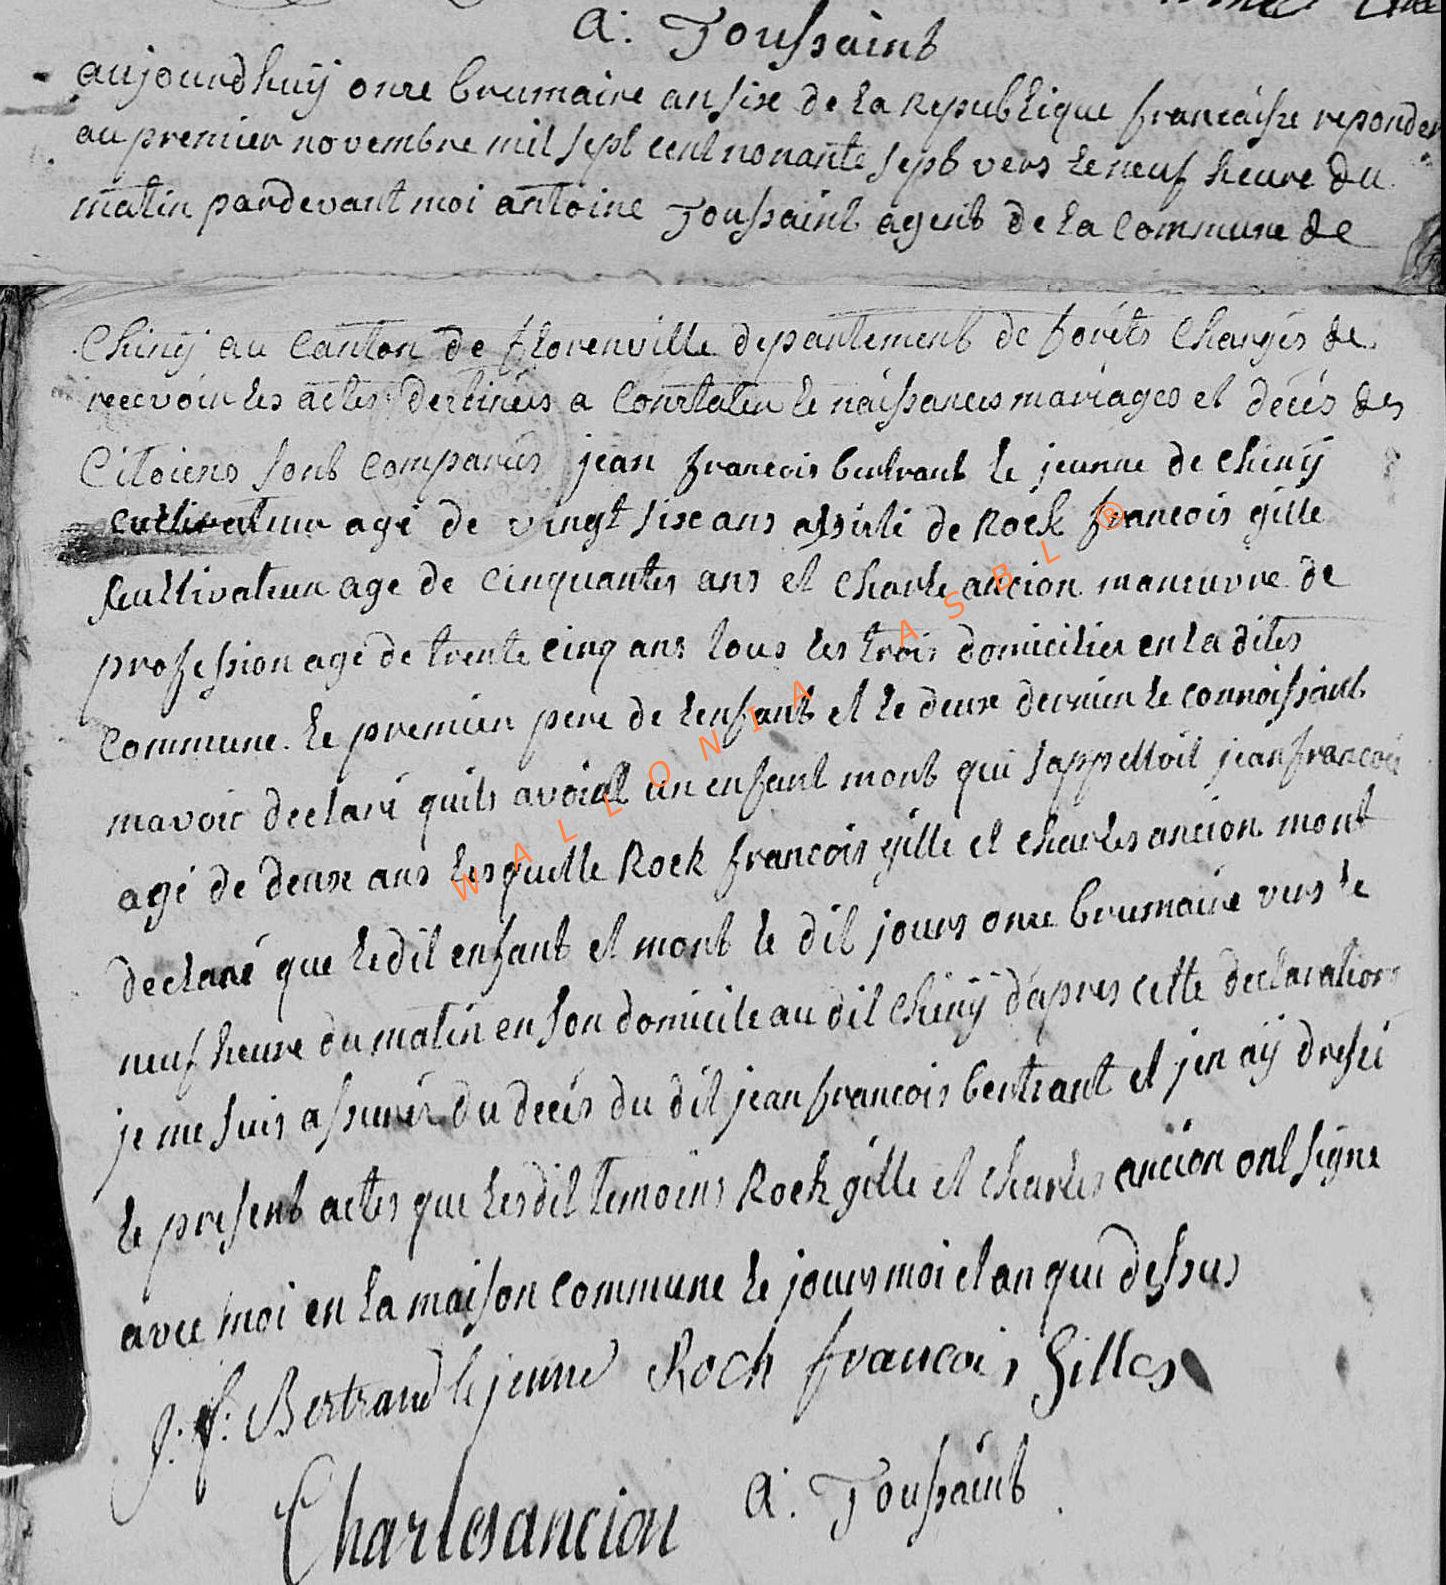 A. Toussaint
aujourdhuÿ onze brumaire an six de la Republique francaisze reponder
au premier novembre mil sept cent nonante sept vers le neuf heure du
matin pardevant moi antoine Toussaint agent de la commune de
Chinÿ au Canton de florenville departement de forêts Chargés de
recevoir les actes destinées a Constater le naissances mariages et décés des
Citoiens sont comparûs jean francois bertrant le jeunne de chinÿ
cultivateur agé de vingt sixe ans assisté de Rock francois gille
cultivateur age de cinquantes ans et charle ancion maneuvre de
profession agé de trente cinq ans tous les trois domicilier en la dites
commune. le premier pere de lenfant et le deux dernier le connoissant
mavoir declaré quils avoiat un enfant mort qui sappelloit jean francois
agé de deux ans lesquelle Rock francois gille et charles ancion mont
declaré que ledit enfant et mort le dit jours onze brumaire vers le
neuf heure du matin en son domicile au dit chinÿ dapres cette declarations
je me suis assurér du decés du dit jean francois bertrant et jen aÿ dressé
le present actes que lesdit temoins Rock gille et charles ancion ont signe
avec moi en la maison commune le jours moi et an que dessus
J. f. Bertrand le jeune Roch francois Gilles
Charles ancion A. Toussaint
WALLONIA ASBL ®